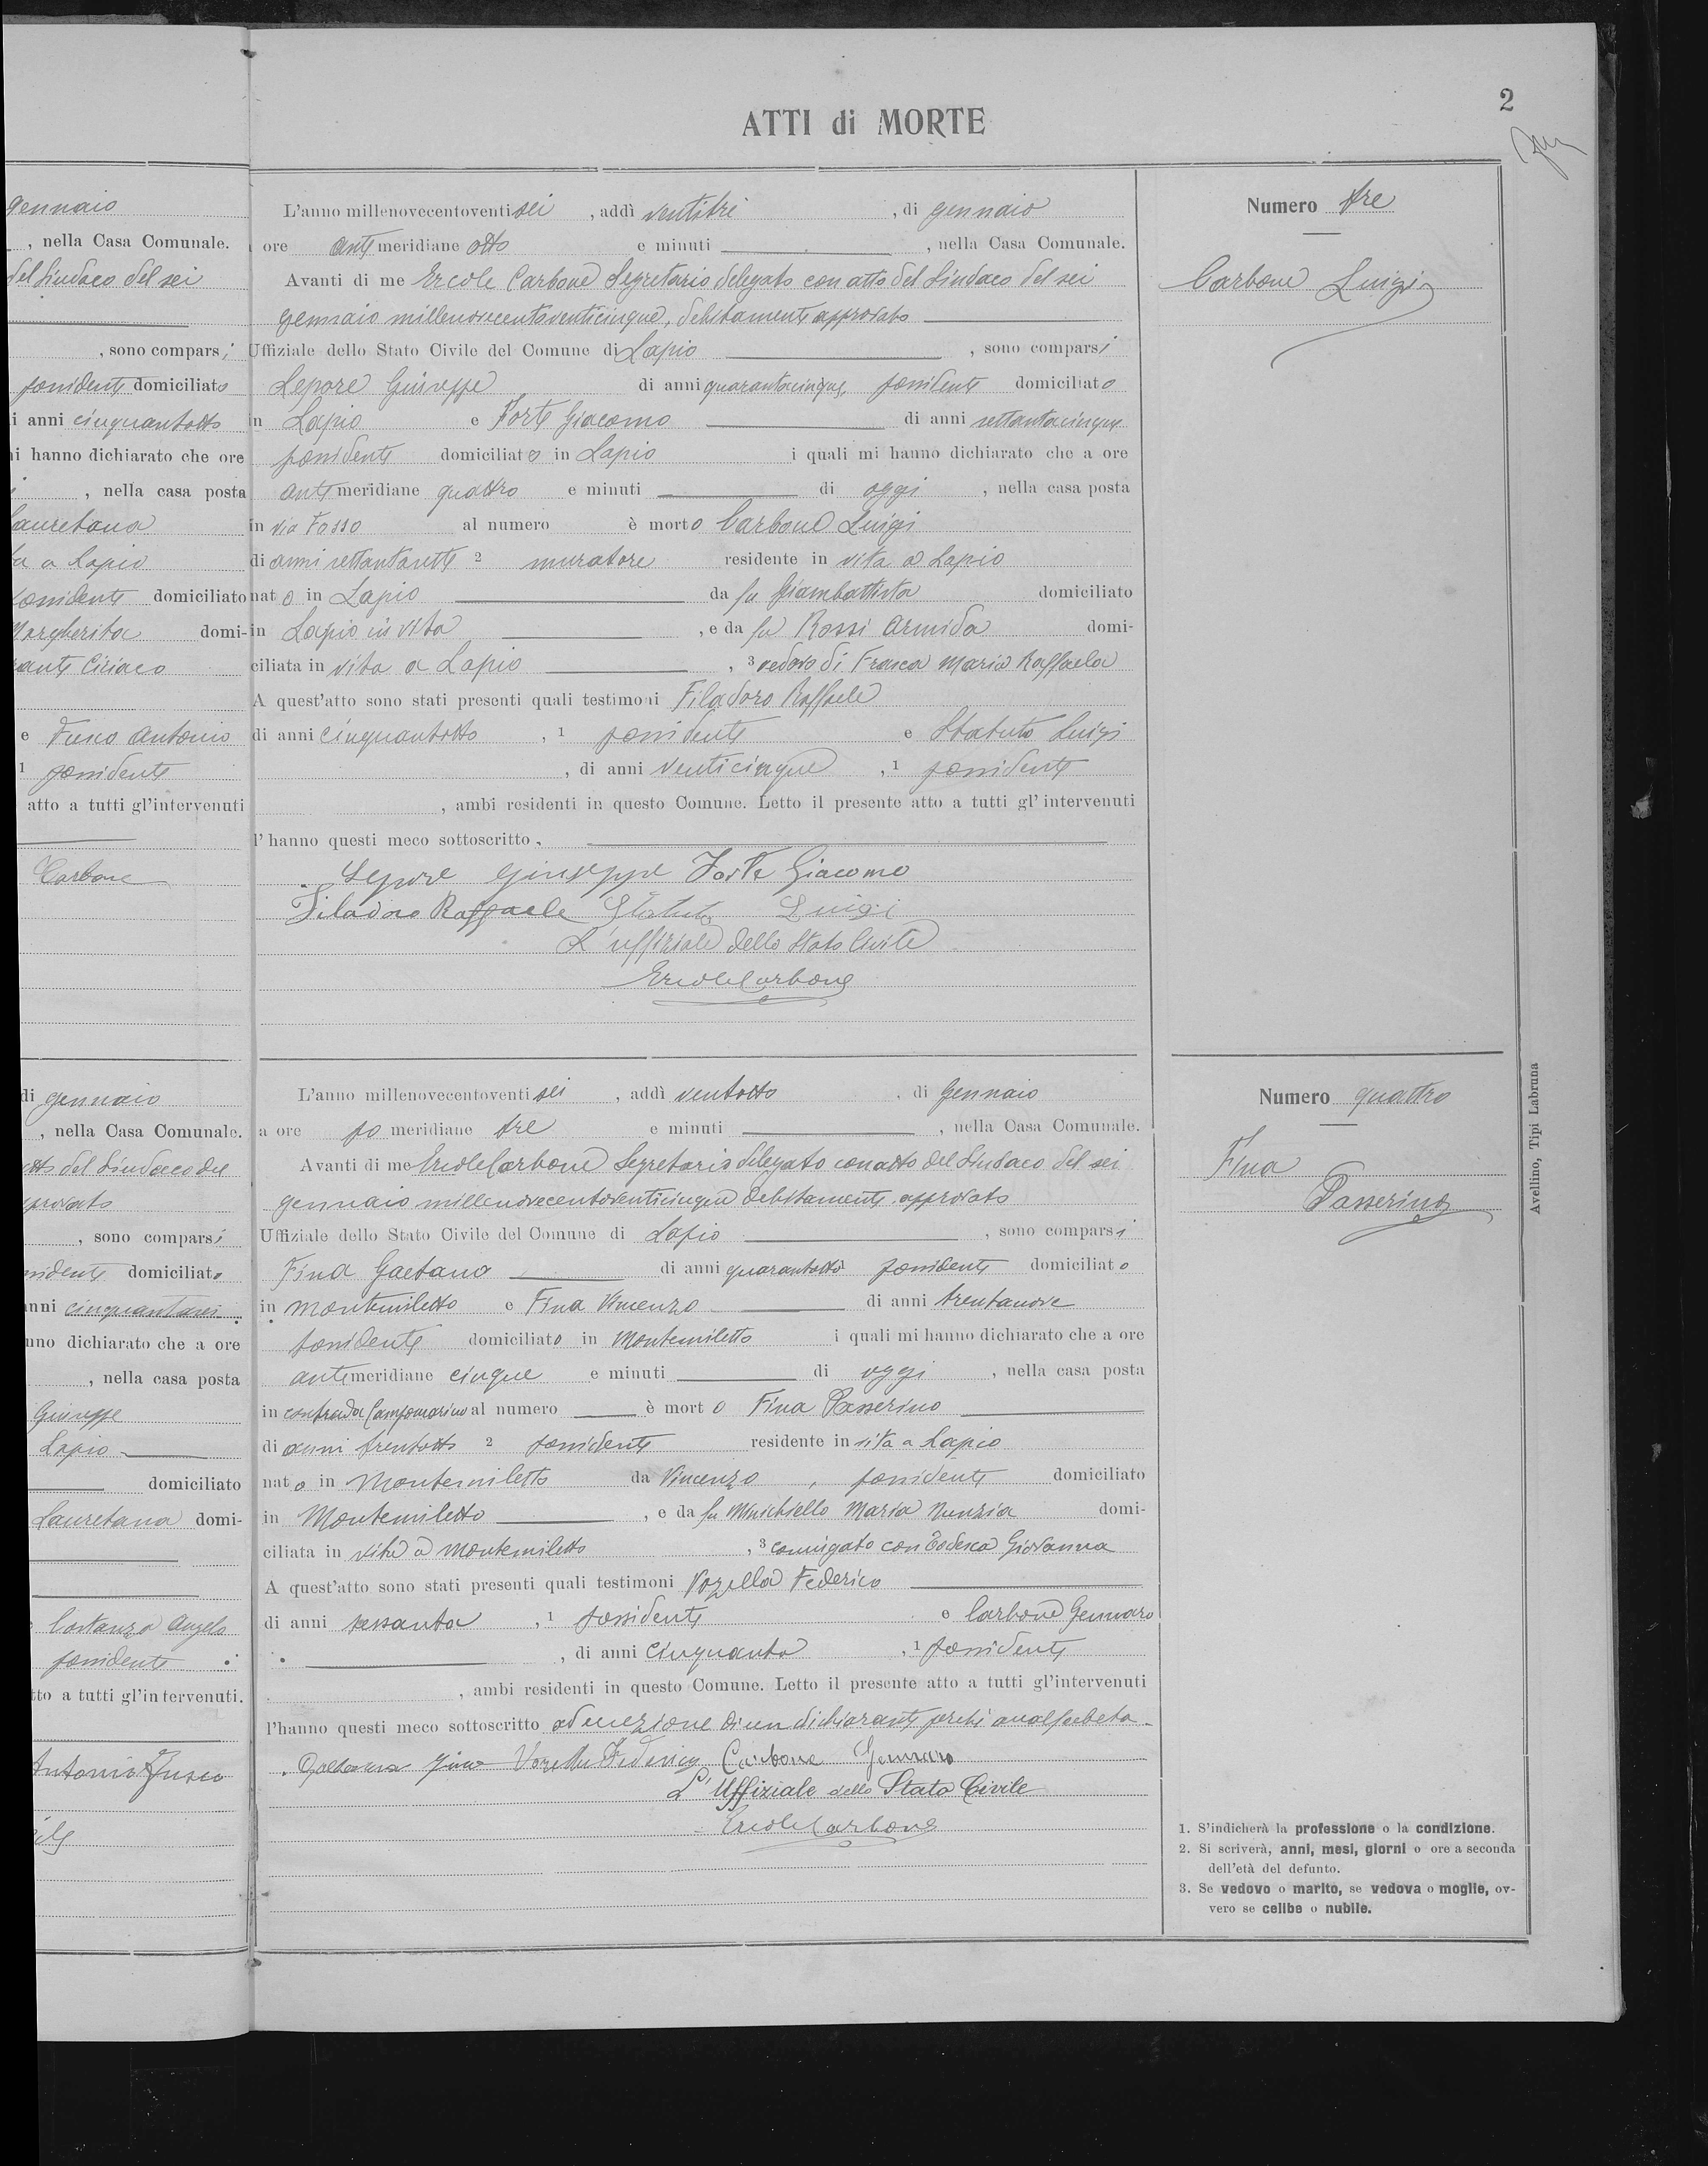 2
ATTI di MORTE
gennaio
, nella Casa Comunale.
del Sindaco del sei
, sono comparsi
possidente domiciliato
di anni cinquantotto
hanno dichiarato che ore
, nella casa posta
Lauretana
a Lapio
possidente domiciliato
Margherita domi-
Ciriaco
e Fusco Antonio
1 possidente
atto a tutti gl'intervenuti
Carbone
di gennaio
, nella Casa Comunale.
del Sindaco del
, sono comparsi
domiciliato
anni cinquantasei
dichiarato che a ore
, nella casa posta
Giuseppe
Lapio
domiciliato
Lauretana domi-
Costanza Angelo
possidente
a tutti gl'intervenuti.
Antonio Fusco
L'anno millenovecentoventi sei , addì ventitre , di gennaio
ore antimeridiane otto e minuti , nella Casa Comunale.
Avanti di me Ercole Carbone Segretario delegato con atto del Sindaco del sei
gennaio millenovecentoventicinque, debitamente approvato
Uffiziale dello Stato Civile del Comune di Lapio , sono comparsi
Lepore Giuseppe di anni quarantacinque, possidente domiciliato
in Lapio e Forte Giacomo di anni settantacinque
possidente domiciliato in Lapio i quali mi hanno dichiarato che a ore
antimeridiane quattro e minuti di oggi , nella casa posta
in via Fosso al numero è morto Carbone Luigi
di anni settantasette 2 muratore residente in vita a Lapio
nato in Lapio da fu Giambattista domiciliato
in Lapio in vita , e da fu Rossi Armida domi-
ciliata in vita a Lapio , 3 vedovo di Frasca Maria Raffaela
A quest'atto sono stati presenti quali testimoni Filadoro Raffaele
di anni cinquantotto , 1 possidente e Statuto Luigi
, di anni venticinque , 1 possidente
, ambi residenti in questo Comune. Letto il presente atto a tutti gl'intervenuti
l'hanno questi meco sottoscritto.
Lepore Giuseppe Forte Giacomo
Filadoro Raffaele Statuto Luigi
L'uffiziale dello Stato Civile
Ercole Carbone
Numero tre
Carbone Luigi
L'anno millenovecentoventi sei , addì ventotto , di Gennaio
a ore pomeridiane tre e minuti , nella Casa Comunale.
Avanti di me Ercole Carbone Segretario delegato con atto del Sindaco del sei
gennaio millenovecentoventicinque debitamente approvato
Uffiziale dello Stato Civile del Comune di Lapio , sono comparsi
Fina Gaetano di anni quarantotto possidente domiciliato
in Montemiletto e Fina Vincenzo di anni trentanove
possidente domiciliato in Montemiletto i quali mi hanno dichiarato che a ore
antimeridiane cinque e minuti di oggi , nella casa posta
in contrada Campomarino al numero è morto Fina Passerino
di anni trentotto 2 possidente residente in vita a Lapio
nato in Montemiletto da Vincenzo , possidente domiciliato
in Montemiletto , e da fu Minichiello Maria Nunzia domi-
ciliata in vita a Montemiletto , 3 coniugato con Todesca Giovanna
A quest'atto sono stati presenti quali testimoni Vozella Federico
di anni sessanta , 1 possidente e Carbone Gennaro
, di anni cinquanta , 1 possidente
, ambi residenti in questo Comune. Letto il presente atto a tutti gl'intervenuti
l'hanno questi meco sottoscritto ad eccezione di un dichiarante perché analfabeta.
Fina Vozella Federico Carbone Gennaro
L'Uffiziale dello Stato Civile
Ercole Carbone
Numero quattro
Fina
Passerino
1. S'indicherà la professione o la condizione.
2. Si scriverà, anni, mesi, giorni o ore a seconda
dell'età del defunto.
3. Se vedovo o marito, se vedova o moglie, ov-
vero se celibe o nubile.
Avellino, Tipi Labruna